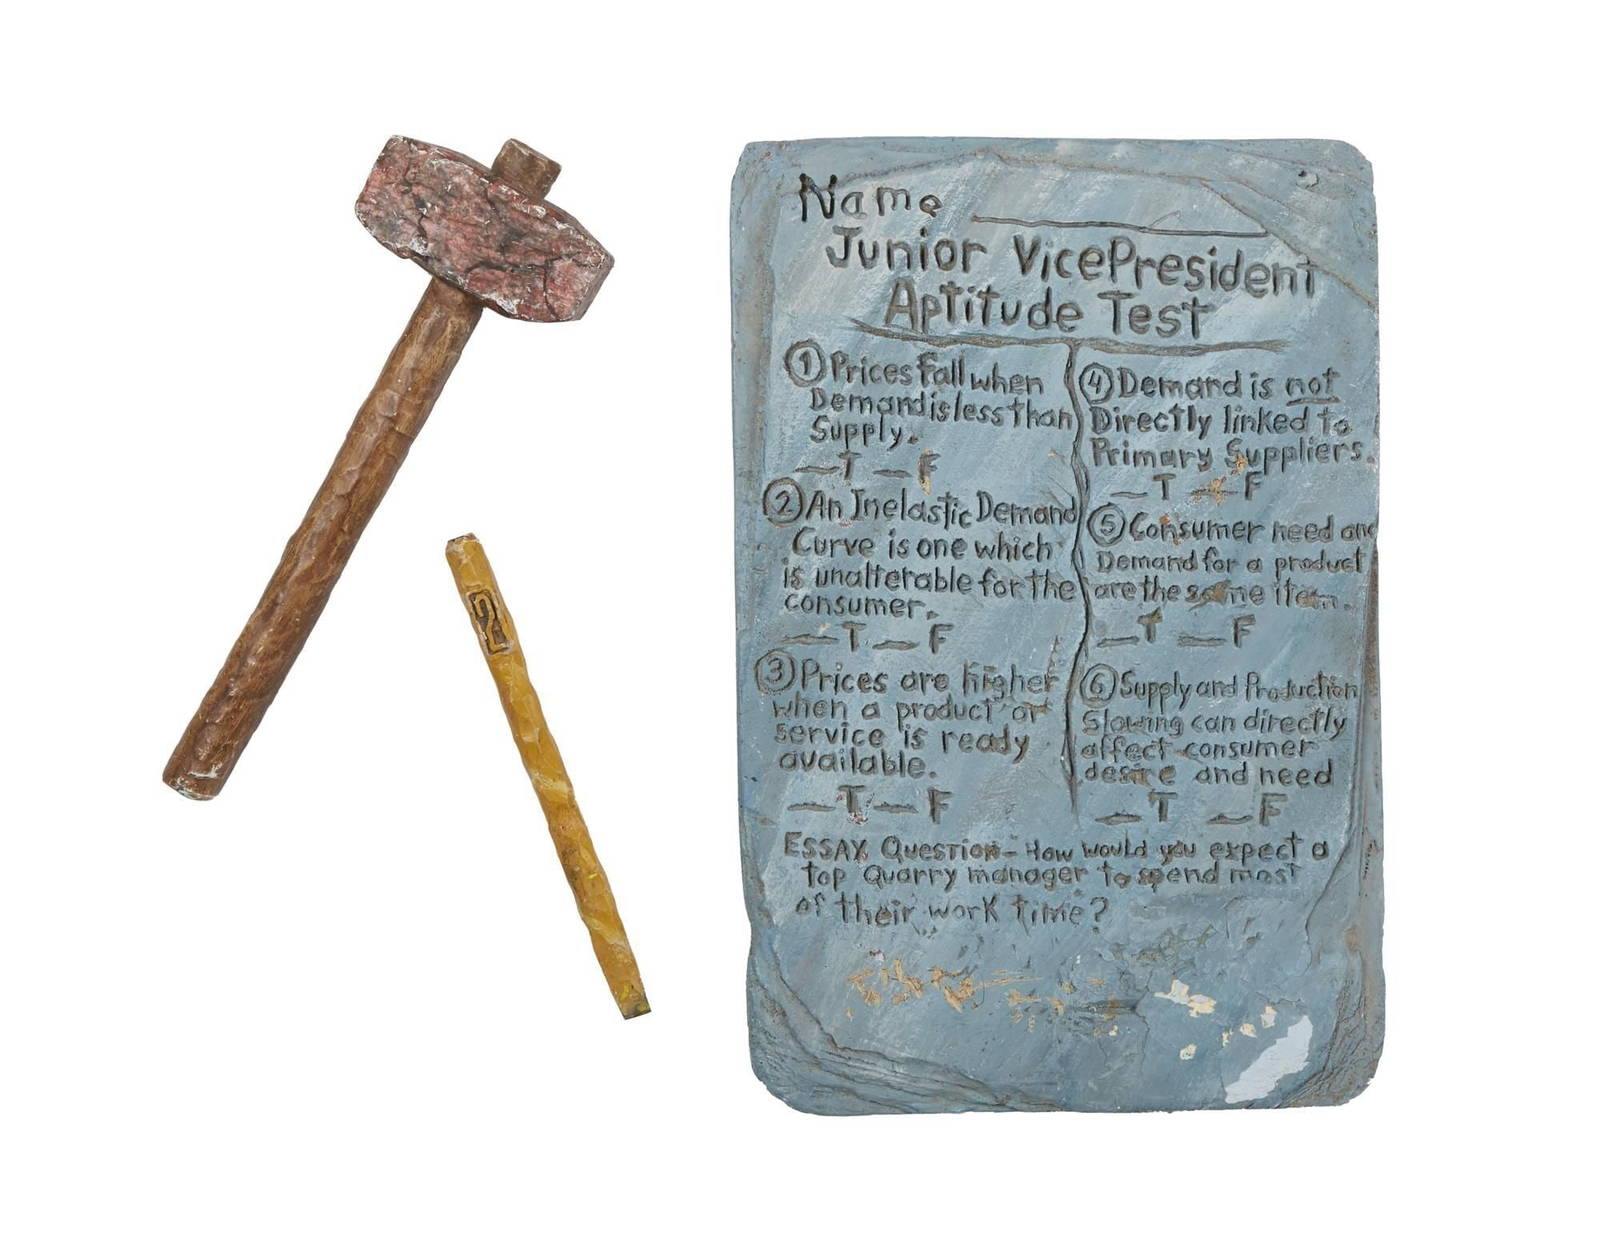 2
Name
Junior VicePresident
Aptitude Test
1 Prices fall when
Demand is less than
Supply.
T F
2 An Inelastic Demand
Curve is one which
is unalterable for the
consumer.
T F
3 Prices are higher
when a product or
service is ready
available.
T F
4 Demand is not
Directly linked to
Primary Suppliers.
T F
5 Consumer need and
Demand for a product
are the same item.
T F
6 Supply and Production
Slowing can directly
affect consumer
desire and need
T F
ESSAY Question - How would you expect a
top Quarry manager to spend most
of their work time?